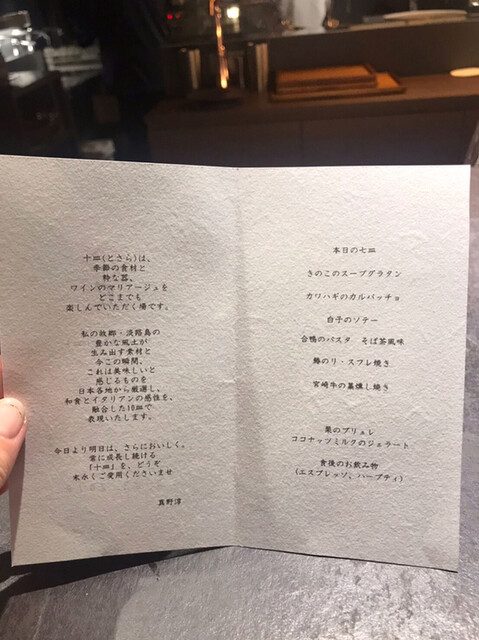 十皿(とさら)は、
季節の食材と
粋な器、
ワインのマリアージュを
どこまでも
楽しんでいただく場です。
私の故郷・淡路島の
豊かな風土が
生み出す素材と
今この瞬間、
これは美味しいと
感じるものを
日本各地から厳選し、
和食とイタリアンの感性を、
融合した10皿で
表現いたします。
今日より明日は、さらにおいしく。
常に成長し続ける
「十皿」を、どうぞ
末永くご愛用くださいませ
真野淳
本日の七皿
きのこのスープグラタン
カワハギのカルパッチョ
白子のソテー
合鴨のパスタ そば茶風味
鰆のリ・スフレ焼き
宮崎牛の藁燻し焼き
栗のブリュレ
ココナッツミルクのジェラート
食後のお飲み物
(エスプレッソ、ハーブティ)